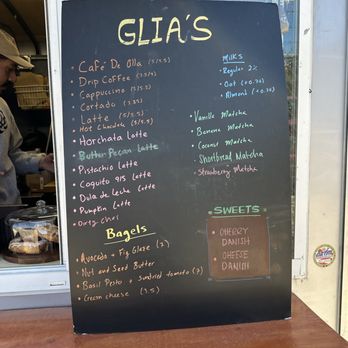 GLIA'S
Café De Olla (5/5.5)
Drip Coffee
Cappuccino
Cortado
Latte (5/5.5)
Hot Chocolate (5/5.5)
Horchata Latte
Butter Pecan Latte
Pistachio Latte
Coquito 915 Latte
Dulce de Leche Latte
Pumpkin Latte
Dirty Chai
Bagels
Avocado + Fig Glaze (7)
Nut and Seed Butter
Basil Pesto + Sundried tomato (7)
Cream Cheese (3.5)
MILKS
Regular 2%
Oat (+0.70)
Almond (+0.70)
Vanilla Matcha
Banana Matcha
Coconut Matcha
Shortbread Matcha
Strawberry Matcha
SWEETS
CHERRY
DANISH
CHEESE
DANISH